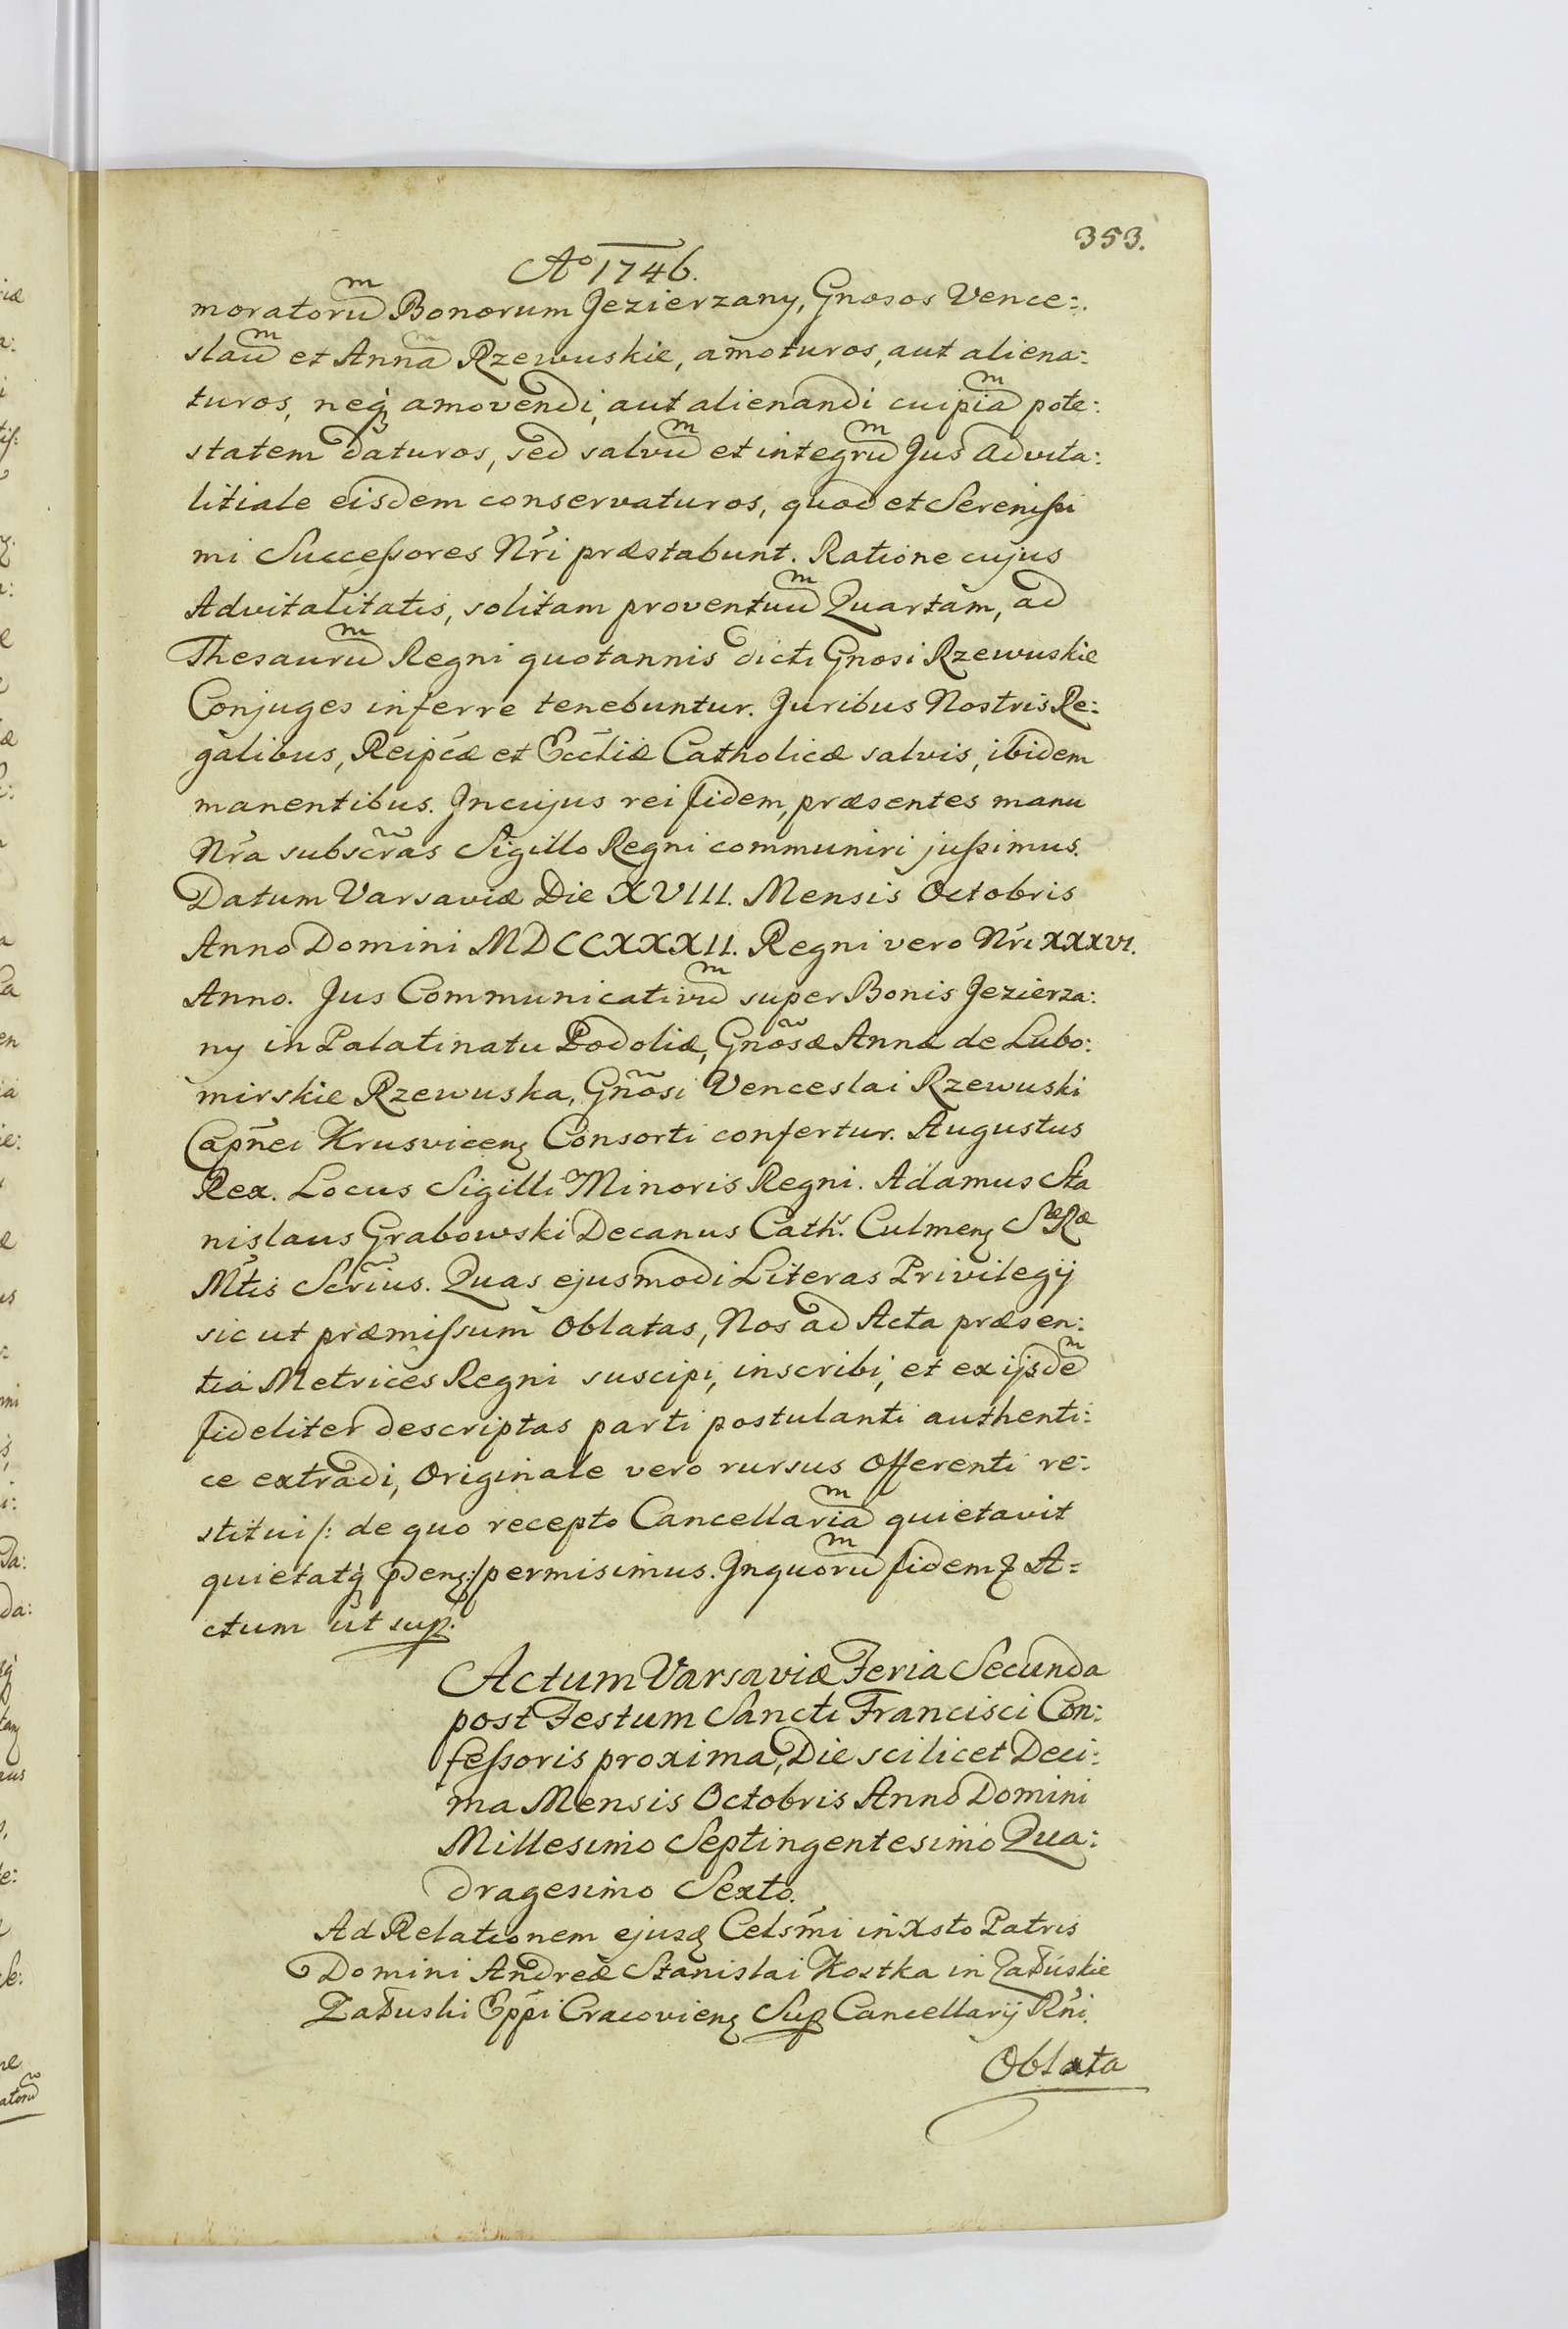 353.
Ao 1746.
moratorum Bonorum Jezierzany, Gnosos Vence:
slaum et Annam Rzewuskie, amoturos, aut aliena:
turos, neq3 amovendi, aut alienandi cuipiam pote:
statem daturos, sed salvum et integrum Jus advita:
litiale eisdem conservaturos, quod et Sereniſsi
mi Succeſsores Nri præstabunt. Ratione cujus
Advitalitatis, solitam proventuum Quartam, ad
Thesaurum Regni quotannis dicti Gnosi Rzewuskie
Conjuges inferre tenebuntur. Juribus Nostris Re:
galibus, Reipcæ et Ecctiæ Catholicæ salvis, ibidem
manentibus. In cujus rei fidem, præsentes manu
Nra subscras Sigillo Regni communiri juſsimus.
Datum Varsaviæ Die XVIII. Mensis Octobris
Anno Domini MDCCXXXII. Regni vero Nri XXXVI.
Anno. Jus Communicativum super Bonis Jezierza:
ny in Palatinatu Podoliæ, Gnosæ Annæ de Lubo:
mirskie Rzewuska, Gnosi Venceslai Rzewuski
Capnei Krusvicen3 Consorti confertur. Augustus
Rex. Locus Sigilli Minoris Regni. Adamus Sta
nislaus Grabowski Decanus Cath. Culmen3 Sæ Ræ
Mtis Scrius. Quas ejusmodi Literas Privilegij
sic ut præmiſsum oblatas, Nos ad Acta præsen:
tia Metrices Regni suscipi, inscribi, et ex ijsdem
fideliter descriptas parti postulanti authenti:
ce extradi, Originale vero rursus Offerenti re:
stitui /: de quo recepto Cancellariam quietavit
quietatq3 pden3 :/ permisimus. In quorum fidem & A=
ctum ut sup.
Actum Varsaviæ Feria Secunda
post Festum Sancti Francisci Con:
feſsoris proxima, Die scilicet Deci:
ma Mensis Octobris Anno Domini
Millesimo Septingentesimo Qua:
dragesimo Sexto.
Ad Relationem ejusd Celsmi in Xsto Patris
Domini Andreæ Stanislai Kostka in Załuskie
Załuski Eppi Cracovien3 Sup Cancellarij Rni.
Oblata